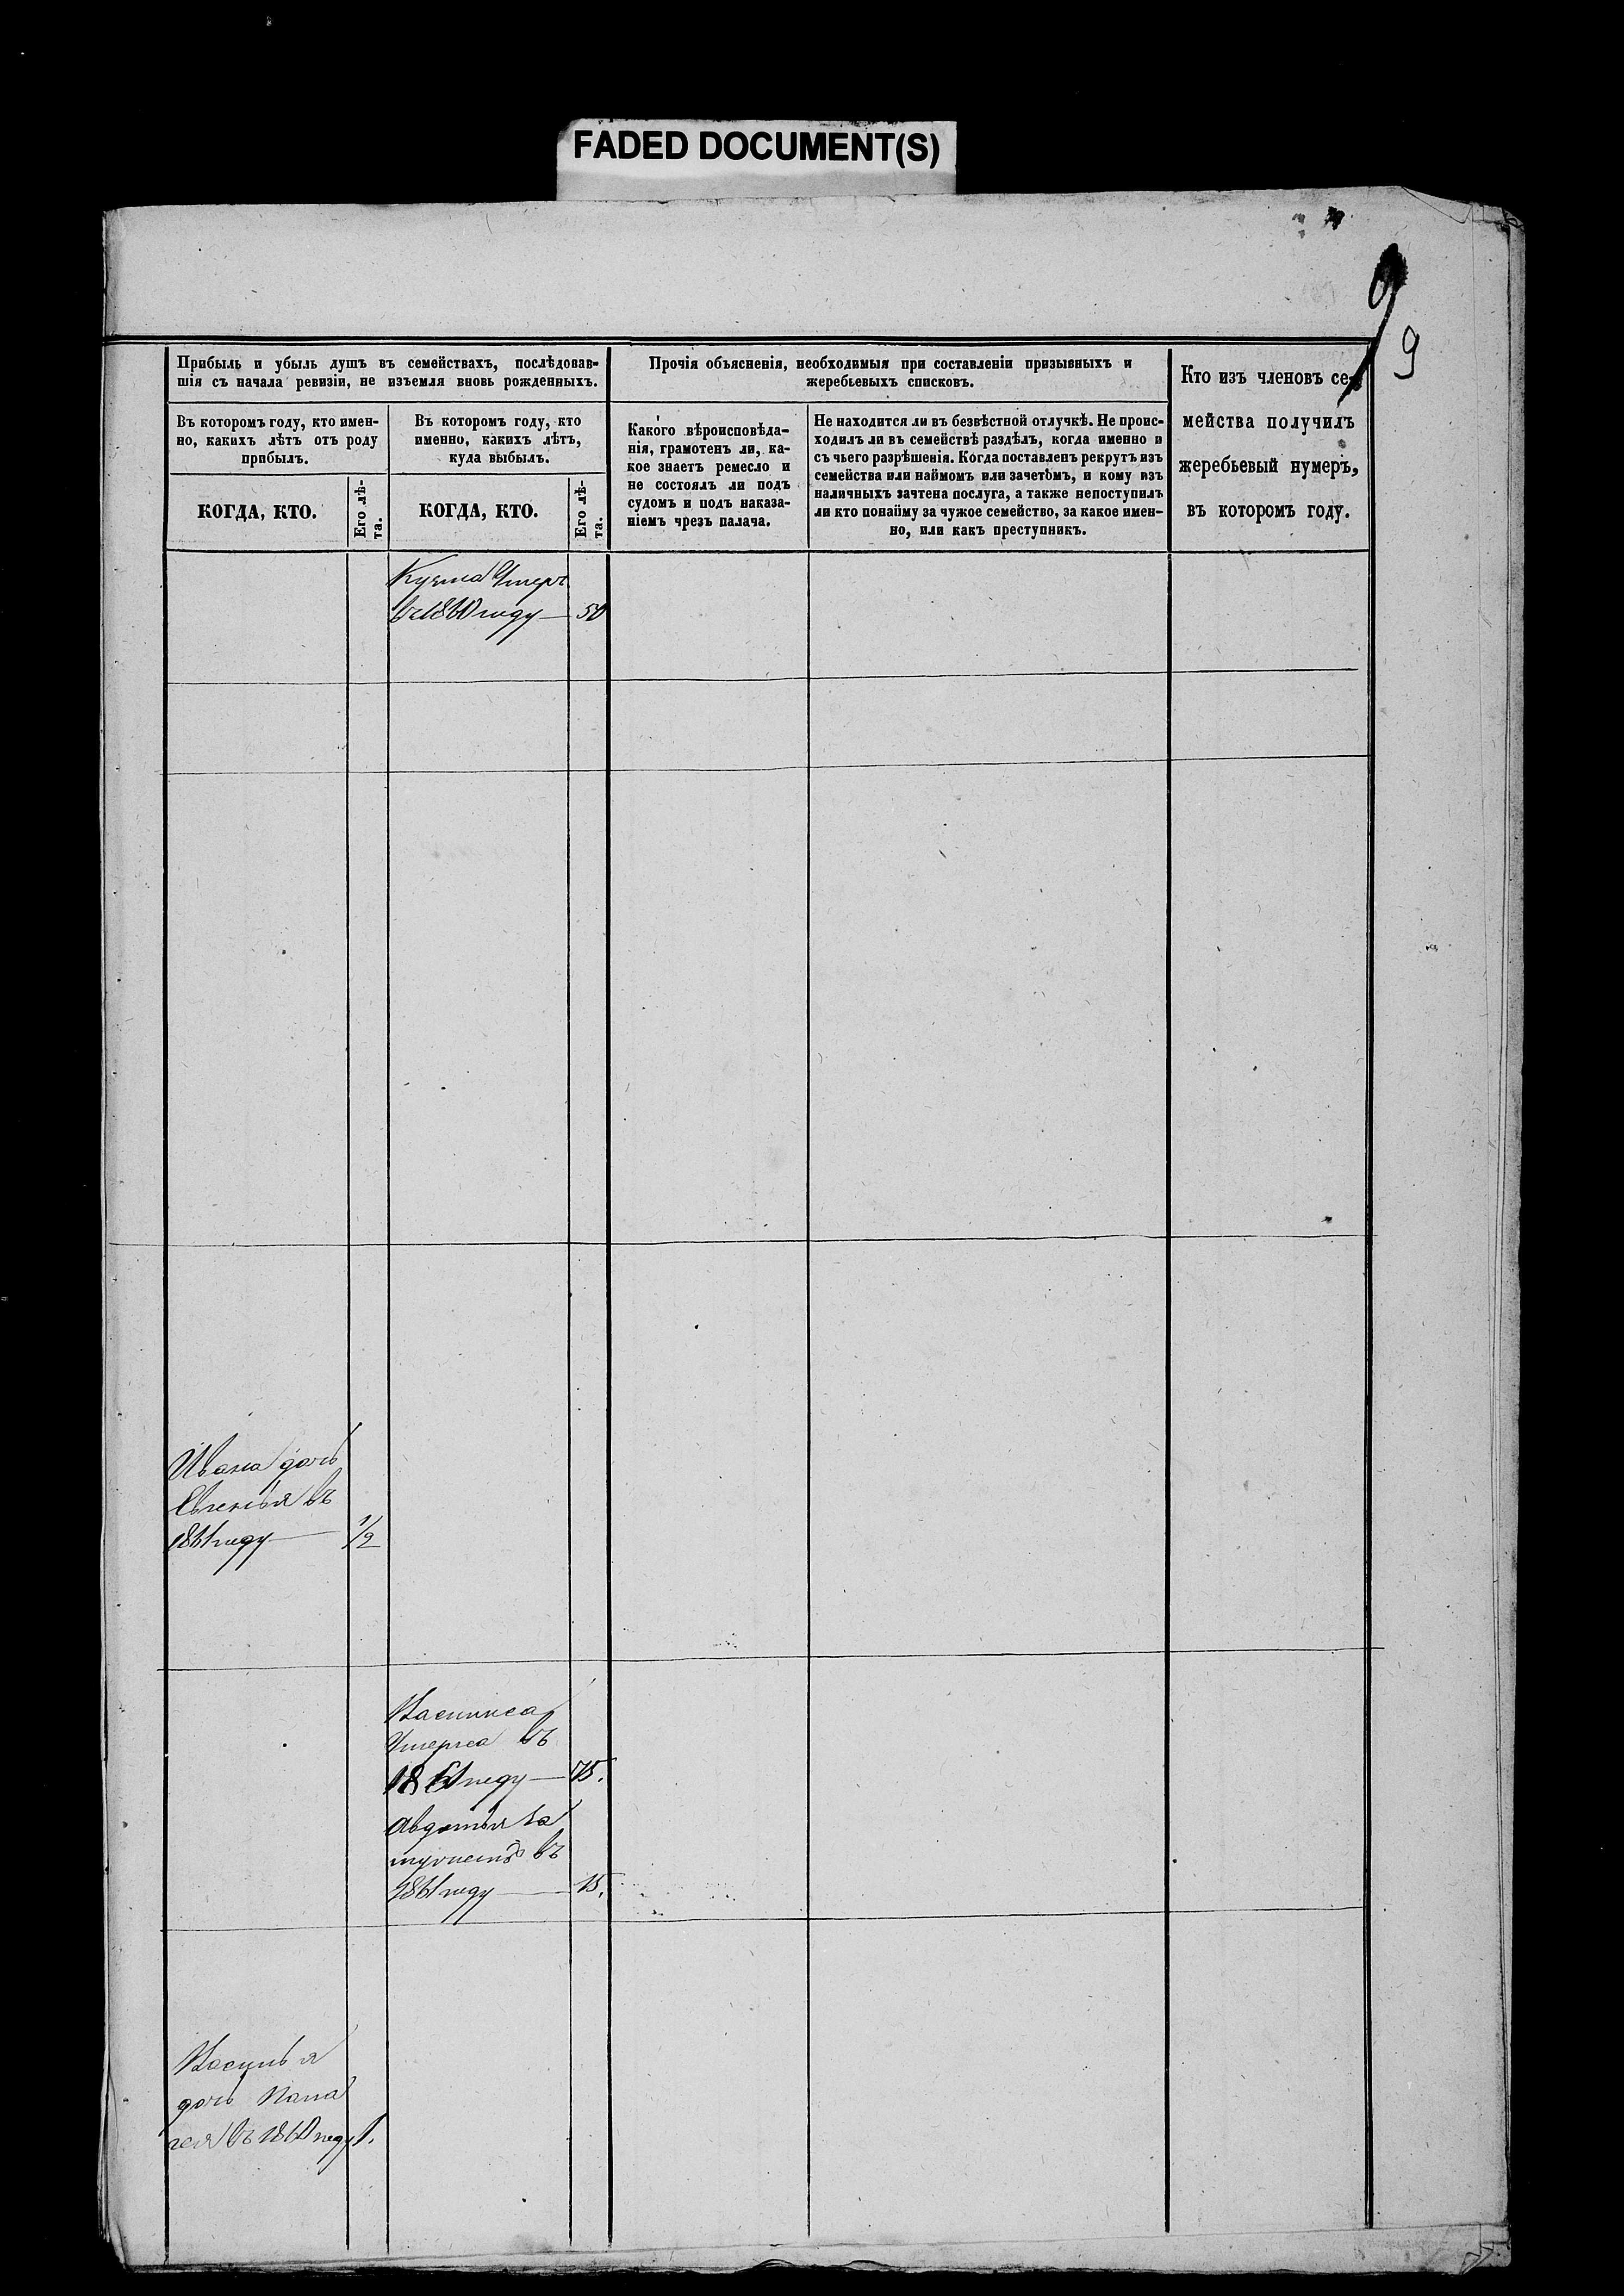 FADED DOCUMENT(S)
9
9
Прибыль и убыль душъ въ семействахъ, послѣдовав-
шія съ начала ревизіи, не изъемля вновь рожденныхъ.
Въ которомъ году, кто имен-
но, какихъ лѣтъ отъ роду
прибылъ.
Въ которомъ году, кто
именно, какихъ лѣтъ,
куда выбылъ.
КОГДА, КТО.
Его лѣ-
та.
КОГДА, КТО.
Его лѣ-
та.
Прочія объясненія, необходимыя при составленіи призывныхъ и
жеребьевыхъ списковъ.
Какого вѣроисповѣда-
нія, грамотенъ ли, ка-
кое знаетъ ремесло и
не состоялъ ли подъ
судомъ и подъ наказа-
ніемъ чрезъ палача.
Не находится ли въ безвѣстной отлучкѣ. Не проис-
ходилъ ли въ семействѣ раздѣлъ, когда именно и
съ чьего разрѣшенія. Когда поставленъ рекрутъ изъ
семейства или наймомъ или зачетомъ, и кому изъ
наличныхъ зачтена послуга, а также непоступилъ
ли кто понайму за чужое семейство, за какое имен-
но, или какъ преступникъ.
Кто изъ членовъ се-
мейства получилъ
жеребьевый нумеръ,
въ которомъ году.
Кузма Умеръ
въ 1860 году — 50
Ивана дочь
Евгенья въ
1861 году — 1/2
Умерла въ
1861 году — 75.
Авдотья за
мужемъ въ
1861 году — 15.
Василья
дочь Пела
гея въ 1860 году 1.